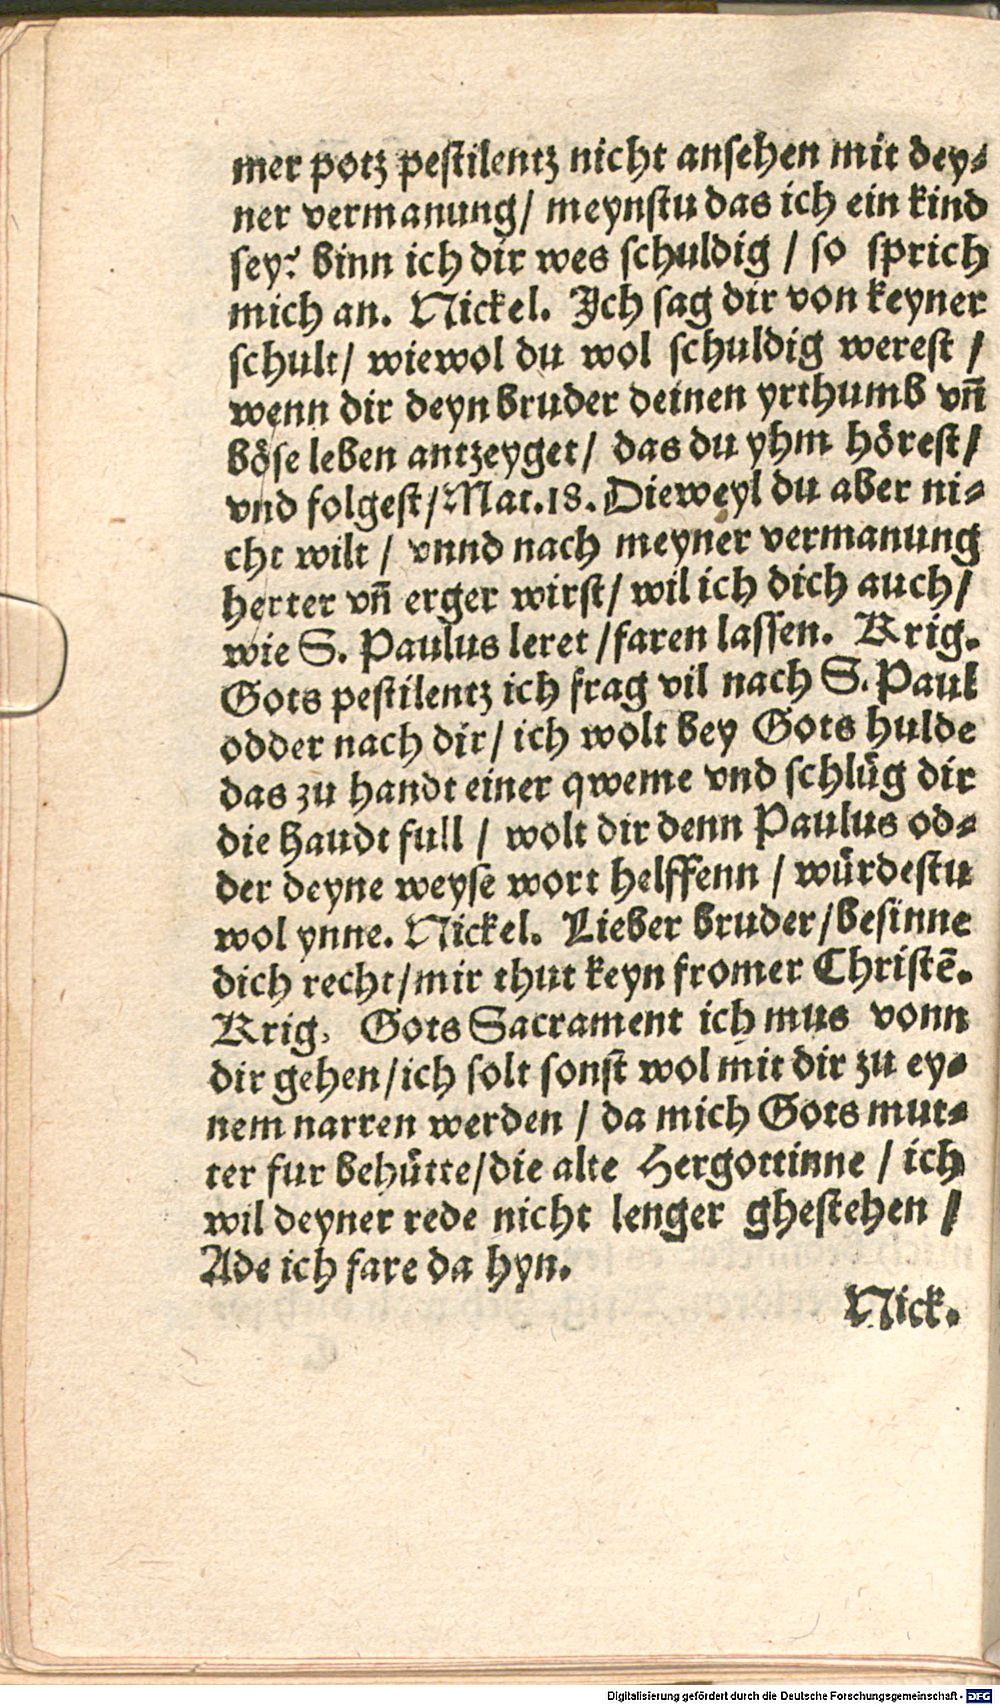 mer potz pestilentz nicht ansehen mit dey⸗
ner vermanung/ meynstu das ich ein kind
sey? binn ich dir wes schuldig / so sprich
mich an. Nickel. Ich sag dir von keyner
schult/ wiewol du wol schuldig werest /
wenn dir deyn bruder deinen yrthumb vn̄
böse leben antzeyget/ das du yhm hörest/
vnd folgest/Mat.18. Dieweyl du aber ni⸗
cht wilt / vnnd nach meyner vermanung
herter vn̄ erger wirst/ wil ich dich auch/
wie S. Paulus leret /faren lassen. Krig.
Gots pestilentz ich frag vil nach S. Paul
odder nach dir/ ich wolt bey Gots hulde
das zu handt einer qweme vnd schlüg dir
die haudt full / wolt dir denn Paulus od⸗
der deyne weyse wort helffenn / würdestu
wol ynne. Nickel. Lieber bruder/besinne
dich recht/mir thut keyn fromer Christē.
Krig. Gots Sacrament ich mus vonn
dir gehen/ich solt sonst wol mit dir zu ey⸗
nem narren werden / da mich Gots mut⸗
ter fur behütte/die alte Hergottinne / ich
wil deyner rede nicht lenger ghestehen /
Ade ich fare da hyn.
Nick.
Digitalisierung gefördert durch die Deutsche Forschungsgemeinschaft - DFG